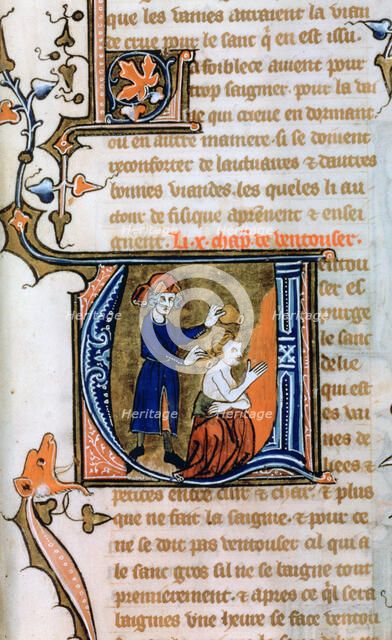 que les vaines atraient la vian
de crue pour le sanc q̃ en est issu.
La foiblece auient pour
trop saignier. pour la
ne que crieue en dormant
ou en autre maniere. si se doiuent
reconforter de laituaires & dautres
bonnes viandes. les queles li au
ctour de fisique aprẽnent & ensei
gnent. li.x.chap. de ventouser.
Ventou
ser es
purge
le sanc
delie
qui est
es vai
nes de
liees &
petites entre cuir & char. & plus
que ne fait la saignie. & pour ce
ne se doit pas ventouser cil qui a
le sanc gros sil ne se baigne tout
premierement. & apres ce q̃l sera
baignies vne heure se face ventou
Heritage
Heritage
Heritage
Heritage
Heritage
Heritage